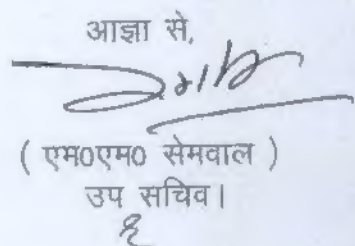 आज्ञा से,
( एम0एम0 सेमवाल )
उप सचिव।